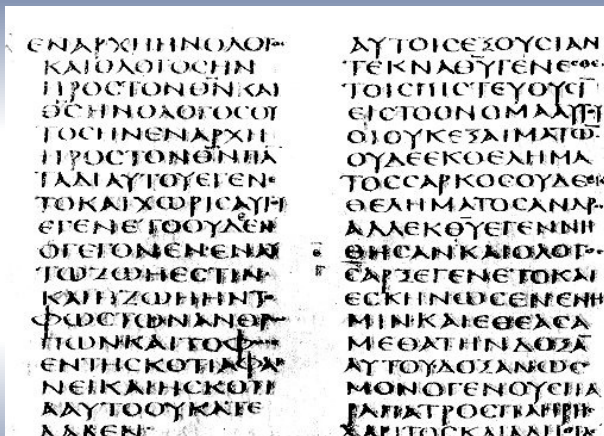 ΕΝΑΡΧΗΗΝΟΛΟΓΟϹ
ΚΑΙΟΛΟΓΟϹΗΝ
ΠΡΟϹΤΟΝΘ̅Ν̅ΚΑΙ
Θ̅Ϲ̅ΗΝΟΛΟΓΟϹΟΥ
ΤΟϹΗΝΕΝΑΡΧΗ
ΠΡΟϹΤΟΝΘ̅Ν̅ΠΑ
ΤΑΔΙΑΥΤΟΥΕΓΕΝΕ
ΤΟΚΑΙΧΩΡΙϹΑΥΤΟΥ
ΕΓΕΝΕΤΟΟΥΔΕΝ
ΟΓΕΓΟΝΕΝΕΝΑΥ
ΤΩΖΩΗΕϹΤΙΝ
ΚΑΙΗΖΩΗΗΝΤΟ
ΦΩϹΤΩΝΑΝΘΡΩ
ΠΩΝΚΑΙΤΟΦΩϹ
ΕΝΤΗϹΚΟΤΙΑΦΑΙ
ΝΕΙΚΑΙΗϹΚΟΤΙ
ΑΑΥΤΟΟΥΚΑΤΕ
ΛΑΒΕΝ
ΑΥΤΟΙϹΕΞΟΥϹΙΑΝ
ΤΕΚΝΑΘ̅Υ̅ΓΕΝΕϹΘΕ
ΤΟΙϹΠΙϹΤΕΥΟΥϹΙ
ΕΙϹΤΟΟΝΟΜΑΑΥΤΟΥ
ΟΙΟΥΚΕΞΑΙΜΑΤΩ
ΟΥΔΕΕΚΘΕΛΗΜΑ
ΤΟϹϹΑΡΚΟϹΟΥΔΕΕΚ
ΘΕΛΗΜΑΤΟϹΑΝΔΡΟϹ
ΑΛΛΕΚΘ̅Υ̅ΕΓΕΝΝΗ
ΘΗϹΑΝΚΑΙΟΛΟΓΟϹ
ϹΑΡΞΕΓΕΝΕΤΟΚΑΙ
ΕϹΚΗΝΩϹΕΝΕΝΗ
ΜΙΝΚΑΙΕΘΕΑϹΑ
ΜΕΘΑΤΗΝΔΟΞΑ
ΑΥΤΟΥΔΟΞΑΝΩϹ
ΜΟΝΟΓΕΝΟΥϹΠΑ
ΡΑΠΑΤΡΟϹΠΛΗΡΗϹ
ΧΑΡΙΤΟϹΚΑΙΑΛΗΘΕΙ